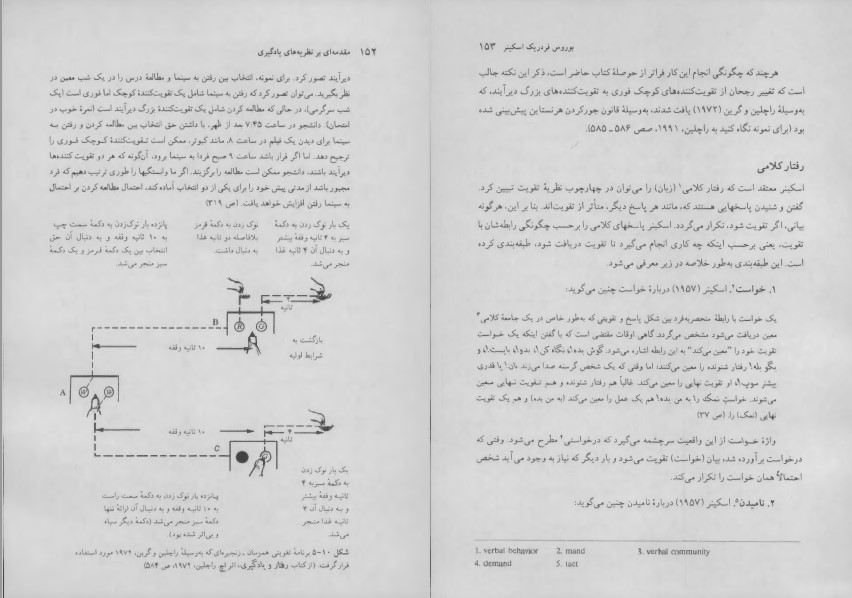 ۱۵۲ مقدمه‌ای بر نظریه‌های یادگیری
دیرآیند تصور کرد. برای نمونه، انتخاب بین رفتن به سینما و مطالعهٔ درس را در یک شب معین در
نظر بگیرید. می‌توان تصور کرد که رفتن به سینما شامل یک تقویت‌کنندهٔ کوچک اما فوری است (یک
شب سرگرمی)، در حالی که مطالعه کردن شامل یک تقویت‌کنندهٔ بزرگ دیرآیند است (نمرهٔ خوب در
امتحان). دانشجو در ساعت ۷:۴۵ بعد از ظهر، با داشتن حق انتخاب بین مطالعه کردن و رفتن به
سینما برای دیدن یک فیلم در ساعت ۸، مانند کبوتر، ممکن است تقویت‌کنندهٔ کوچک فوری را
ترجیح دهد. اما اگر قرار باشد ساعت ۹ صبح فردا به سینما برود، آن‌گونه که هر دو تقویت کننده‌ها
دیرآیند باشند، دانشجو ممکن است مطالعه را برگزیند. اگر ما وابستگیها را طوری ترتیب دهیم که فرد
مجبور باشد از مدتی پیش خود را برای یکی از دو انتخاب آماده کند، احتمال مطالعه کردن بر احتمال
به سینما رفتن افزایش خواهد یافت. (ص ۳۱۹)
یک بار نوک زدن به دکمهٔ
سبز به ۴ ثانیه وقفهٔ بیشتر
و به دنبال آن ۴ ثانیه غذا
منجر می‌شد.
نوک زدن به دکمهٔ قرمز
بلافاصله دو ثانیه غذا
به دنبال داشت.
پانزده بار نوک‌زدن به دکمهٔ سمت چپ
به ۱۰ ثانیه وقفه و به دنبال آن حق
انتخاب بین یک دکمهٔ قرمز و یک دکمهٔ
سبز منجر می‌شد.
۴
ثانیه
B
R
G
بازگشت به
شرایط اولیه
۱۰ ثانیه وقفه
A
W
W
۱۰ ثانیه وقفه
۴
ثانیه
C
G
یک بار نوک زدن
به دکمهٔ سبز به ۴
ثانیه وقفهٔ بیشتر
و به دنبال آن ۴
ثانیه غذا منجر
می‌شد.
پانزده بار نوک زدن به دکمهٔ سمت راست
به ۱۰ ثانیه وقفه و به دنبال آن ارائهٔ تنها
دکمهٔ سبز منجر می‌شد (دکمهٔ دیگر سیاه
و بی‌اثر شده بود)
شکل ۱۰–۵ برنامهٔ تقویتی همزمان ـ زنجیره‌ای که به‌وسیلهٔ راچلین و گرین، ۱۹۷۲ مورد استفاده
قرار گرفت. (از کتاب رفتار و یادگیری، اثر اچ راچلین، ۱۹۷۲، ص ۵۸۴)
بوروس فردریک اسکینر ۱۵۳
هرچند که چگونگی انجام این کار فراتر از حوصلهٔ کتاب حاضر است، ذکر این نکته جالب
است که تغییر رجحان از تقویت‌کننده‌های کوچک فوری به تقویت‌کننده‌های بزرگ دیرآیند، که
به‌وسیلهٔ راچلین و گرین (۱۹۷۲) یافت شدند، به‌وسیلهٔ قانون جورکردن هرنستاین پیش‌بینی شده
بود (برای نمونه نگاه کنید به راچلین، ۱۹۹۱، صص ۵۸۶ ـ ۵۸۵).
رفتار کلامی
اسکینر معتقد است که رفتار کلامی۱ (زبان) را می‌توان در چهارچوب نظریهٔ تقویت تبیین کرد.
گفتن و شنیدن پاسخهایی هستند که، مانند هر پاسخ دیگر، متأثر از تقویت‌اند. بنا بر این، هرگونه
بیانی، اگر تقویت شود، تکرار می‌گردد. اسکینر پاسخهای کلامی را برحسب چگونگی رابطه‌شان با
تقویت، یعنی برحسب اینکه چه کاری انجام می‌گیرد تا تقویت دریافت شود، طبقه‌بندی کرده
است. این طبقه‌بندی به‌طور خلاصه در زیر معرفی می‌شود.
۱. خواست۲. اسکینر (۱۹۵۷) دربارهٔ خواست چنین می‌گوید:
یک خواست با رابطهٔ منحصربه‌فرد بین شکل پاسخ و تقویتی که به‌طور خاص در یک جامعهٔ کلامی۳
معین دریافت می‌شود مشخص می‌گردد. گاهی اوقات مقتضی است که با گفتن اینکه یک خواست
تقویت خود را "معین می‌کند" به این رابطه اشاره می‌شود. گوش بده!، نگاه کن!، بدو!، بایست!، و
بگو بله! رفتار شنونده را معین می‌کنند؛ اما وقتی که یک شخص گرسنه صدا می‌زند نان! یا قدری
بیشتر سوپ!، او تقویت نهایی را معین می‌کند. غالباً هم رفتار شنونده و هم تقویت نهایی معین
می‌شوند. خواستِ نمک را به من بده! هم یک عمل را معین می‌کند (به من بده) و هم یک تقویت
نهایی (نمک) را. (ص ۳۷)
واژهٔ خواست از این واقعیت سرچشمه می‌گیرد که درخواستی۴ مطرح می‌شود. وقتی که
درخواست برآورده شد، بیان (خواست) تقویت می‌شود و بار دیگر که نیاز به وجود می‌آید شخص
احتمالاً همان خواست را تکرار می‌کند.
۲. نامیدن۵. اسکینر (۱۹۵۷) دربارهٔ نامیدن چنین می‌گوید:
1. verbal behavior 2. mand 3. verbal community
4. demand 5. tact